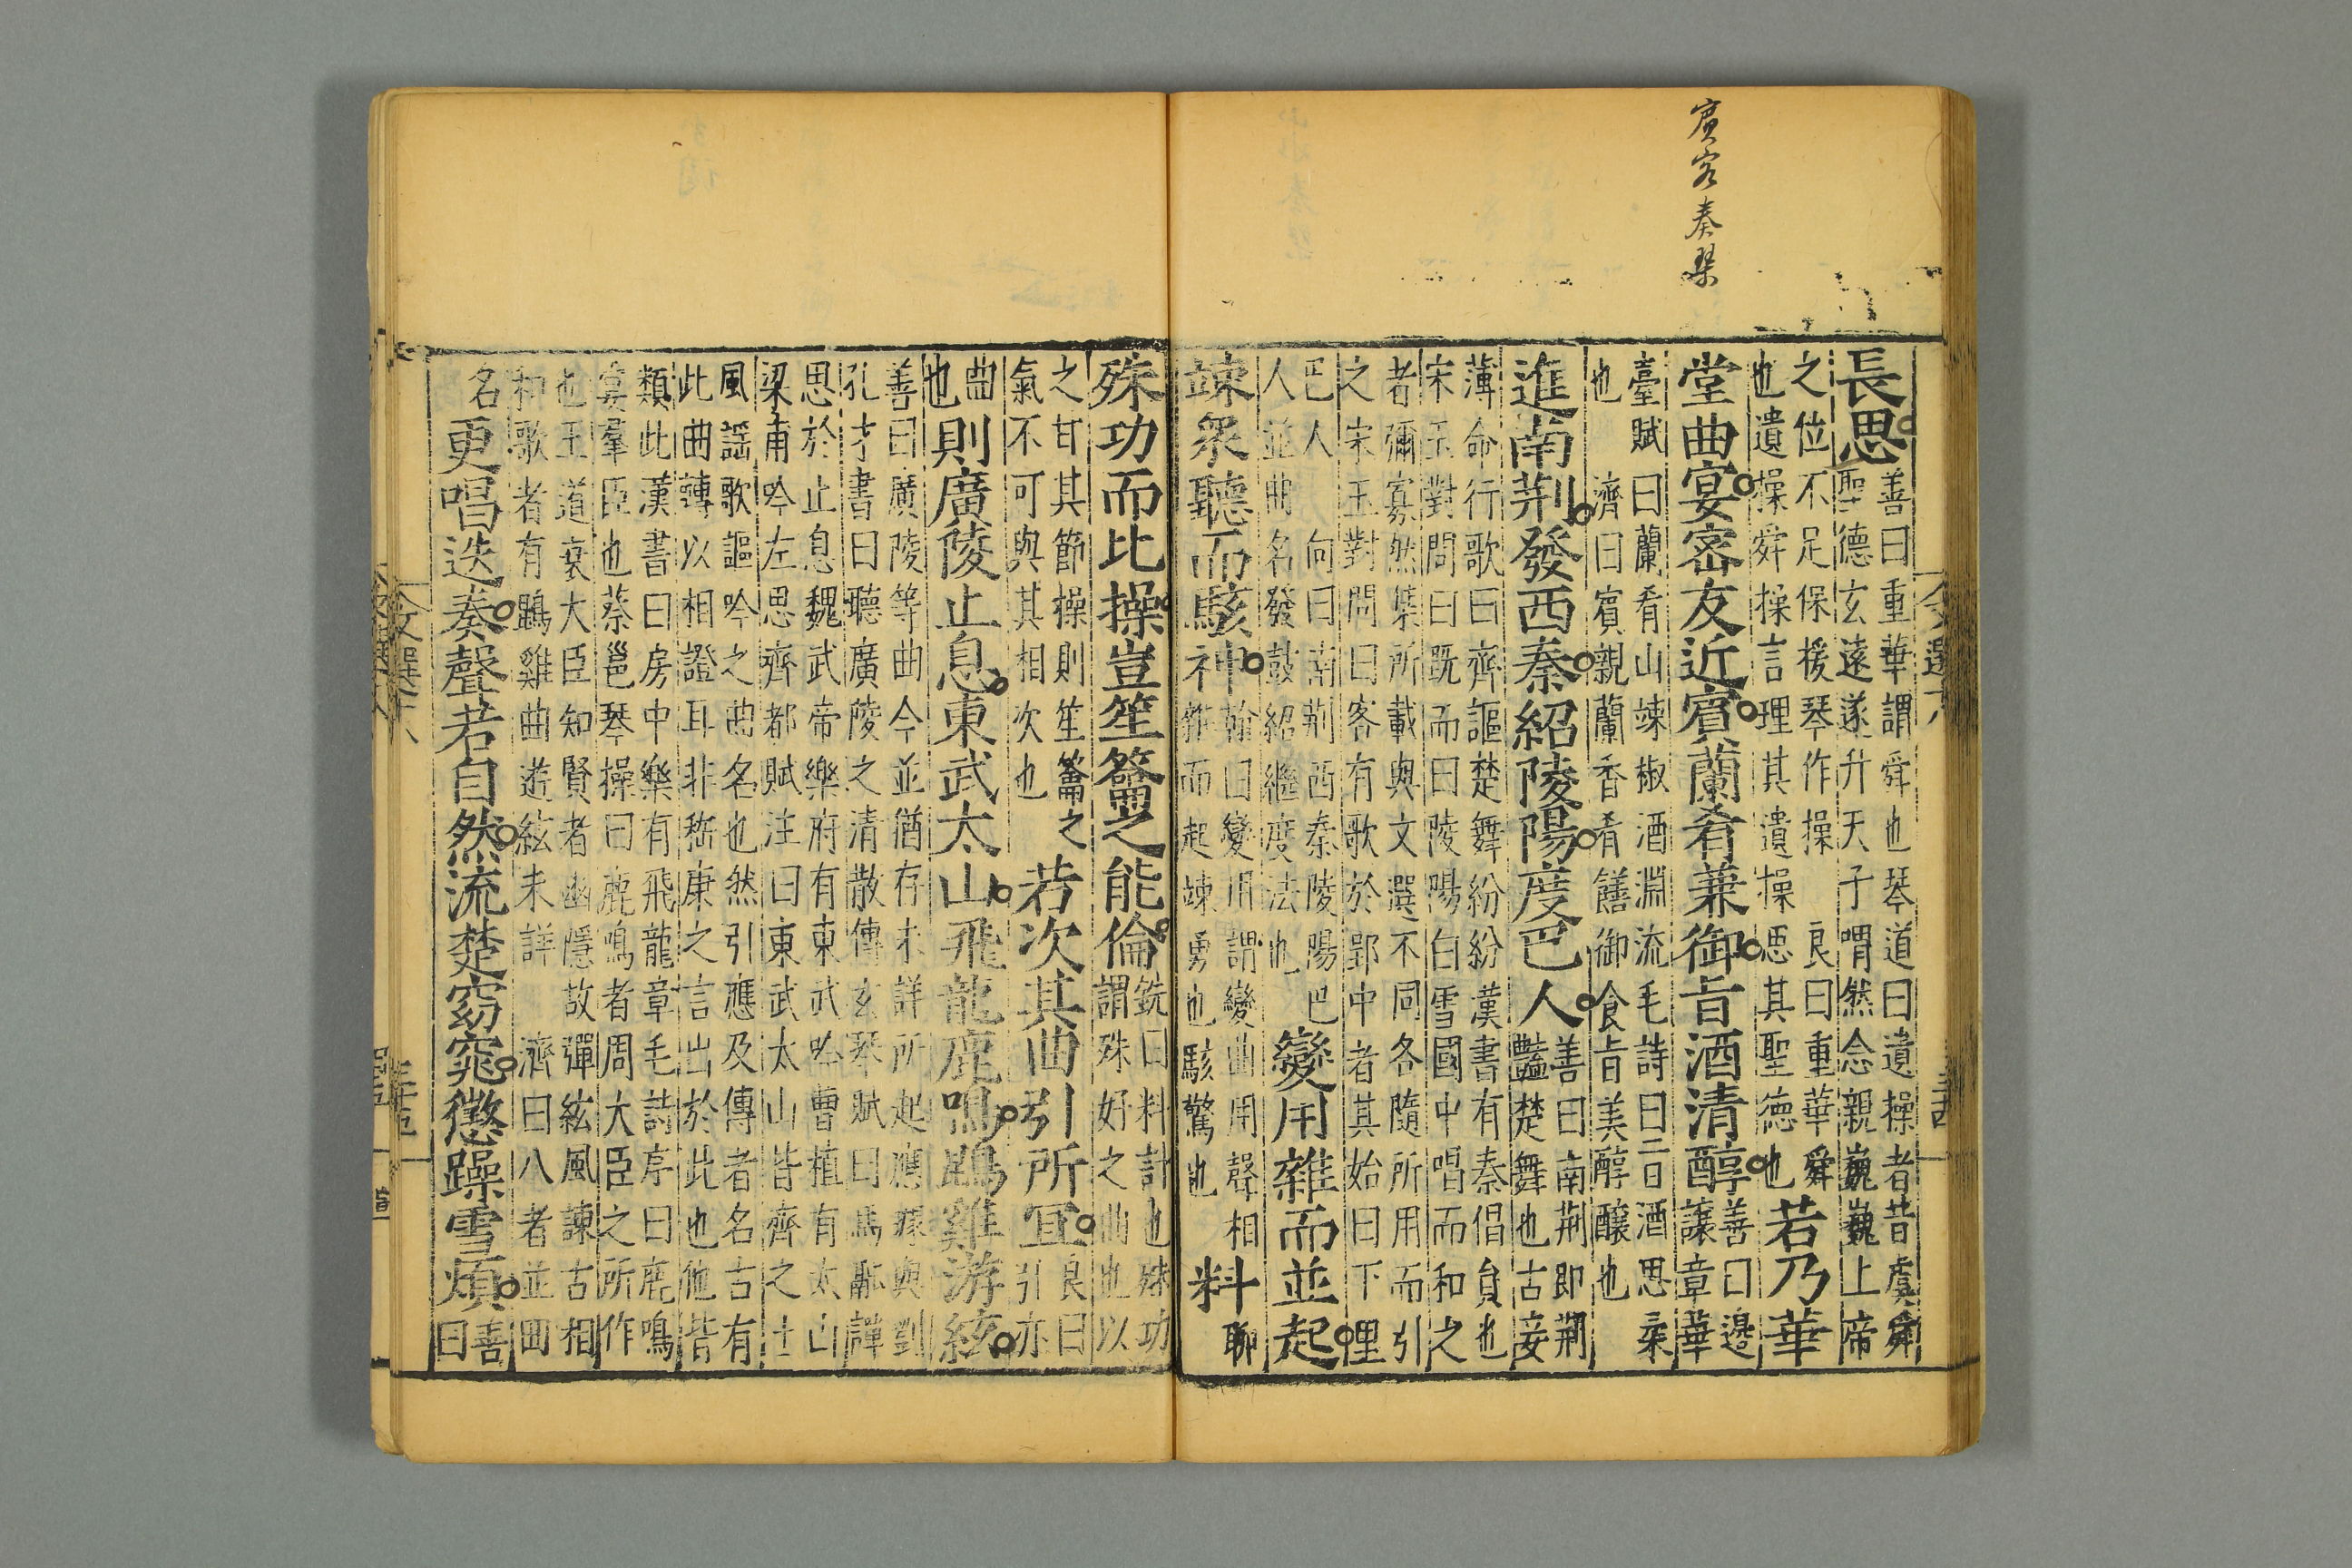 賓客奏琴
長思
善曰重華謂舜也琴道曰遺操者昔虞舜
聖德玄遠遂升天子喟然念親巍巍上帝
之位不足保援琴作操 良曰重華舜
也遺操舜操言理其遺操思其聖德也
若乃華
堂曲宴密友近賓蘭肴兼御旨酒清醇
善曰邊
讓章華
臺賦曰蘭肴山竦椒酒淵流毛詩曰二曰酒思柔
也 濟曰賓親蘭香肴饍御食旨美醇醲也
進南荆發西秦紹陵陽度巴人
善曰南荆即荆
豔楚舞也古妾
薄命行歌曰齊謳楚舞紛紛漢書有秦倡員也
宋玉對問曰既而曰陵陽白雪國中唱而和之
者彌寡然集所載與文選不同各隨所用而引
之宋玉對問曰客有歌於郢中者其始曰下俚
巴人 向曰南荆西秦陵陽巴
人並曲名發鼓紹繼度法也
變用雜而並起
竦衆聽而駭神
翰曰變用謂變曲用聲相
雜而起竦勇也駭驚也
料
聊
殊功而比操豈笙籥之能倫
銑曰料計也殊功
謂殊好之曲也以
之甘其節操則笙籥之
氣不可與其相次也
若次其曲引所宜
良曰
引亦
曲
也
則廣陵止息東武太山飛龍鹿鳴鵾雞游絃
善曰廣陵等曲今並猶存未詳所起應璩與劉
孔才書曰聽廣陵之清散傅玄琴賦曰馬融譚
思於止息魏武帝樂府有東武吟曹植有太山
梁甫吟左思齊都賦注曰東武太山皆齊之士
風謠歌謳吟之曲名也然引應及傅者名古有
此曲轉以相證耳非嵇康之言出於此也他皆
類此漢書曰房中樂有飛龍章毛詩序曰鹿鳴
宴羣臣也蔡邕琴操曰鹿鳴者周大臣之所作
也王道衰大臣知賢者幽隱故彈絃風諫古相
和歌者有鵾雞曲遊絃未詳 濟曰八者並曲
名
更唱迭奏聲若自然流楚窈窕懲躁雪煩
善
曰